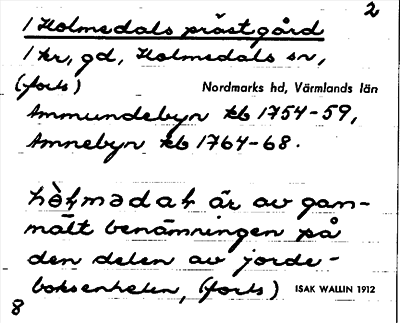 2
1 Holmedals prästgård
1 kr, gd, Holmedals sn,
(forts) Nordmarks hd, Värmlands län
Ammundebyn kb 1754-59,
Amnebyn kb 1764-68.
är av gam-
mält benämningen på
den delen av jorde-
boksenheten, (forts) ISAK WALLIN 1912
8